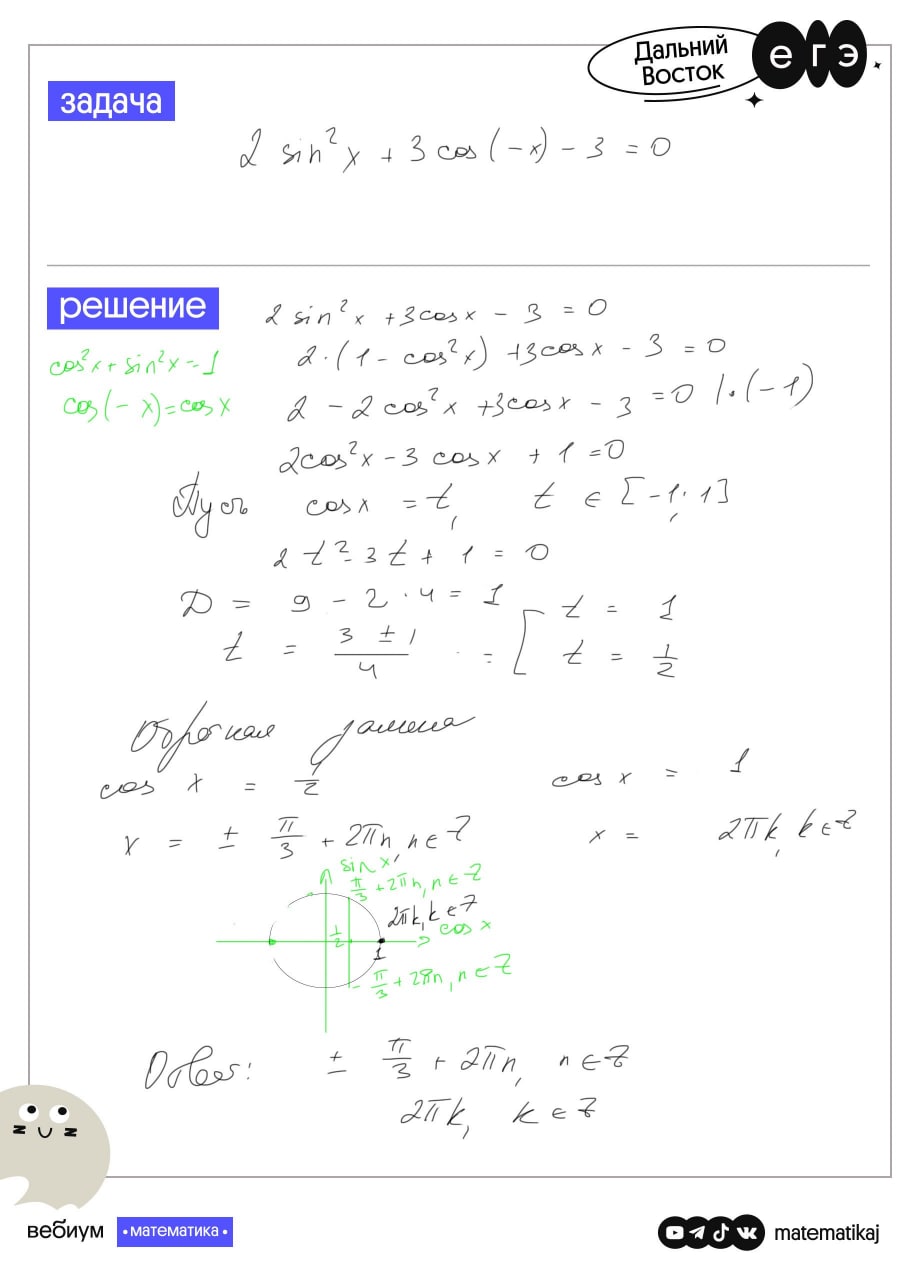 Дальний
Восток
егэ
задача
2 sin²x + 3 cos(-x) - 3 = 0
решение
2 sin²x + 3cosx - 3 = 0
cos²x + sin²x = 1
2·(1 - cos²x) + 3cosx - 3 = 0
cos(-x) = cosx
2 - 2cos²x + 3cosx - 3 = 0 |·(-1)
2cos²x - 3cosx + 1 = 0
Пусть cosx = t, t ∈ [-1; 1]
2t² - 3t + 1 = 0
D = 9 - 2·4 = 1
t = (3 ± 1)/4 = [ t = 1
t = 1/2
Обратная замена
cos x = 1/2
cos x = 1
x = ± π/3 + 2πn, n ∈ Z
x = 2πk, k ∈ Z
sin x
π/3 + 2πn, n ∈ Z
2πk, k ∈ Z
cos x
1/2
1
- π/3 + 2πn, n ∈ Z
Ответ: ± π/3 + 2πn, n ∈ Z
2πk, k ∈ Z
вебиум
• математика •
matematikaj